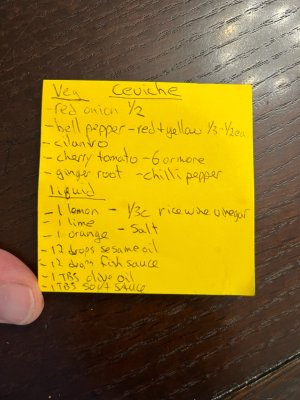 Veg Ceviche
- red onion 1/2
- bell pepper - red + yellow 1/3 - 1/2 ea
- cilantro
- cherry tomato - 6 or more
- ginger root - chilli pepper
Liquid
- 1 lemon - 1/3c rice wine vinegar
- 1 lime
- 1 orange - Salt
- 12 drops sesame oil
- 12 drops fish sauce
- 1 TBS olive oil
- 1 TBS soy sauce